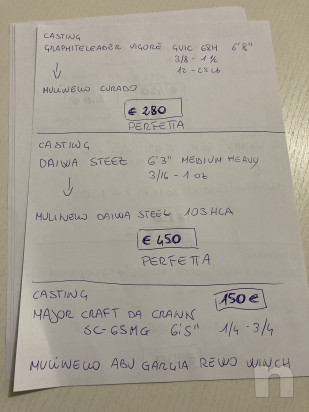 CASTING
GRAPHITELEADER VIGORE GVIC 68H 6'8"
3/8 - 1 1/2
12 - 25 Lb
MULINELLO CURADO
€ 280
PERFETTA
CASTING
DAIWA STEEZ 6'3" MEDIUM HEAVY
3/16 - 1 oz
MULINELLO DAIWA STEEZ 103HLA
€ 450
PERFETTA
CASTING
150 €
MAJOR CRAFT DA CRANN
SC-65MG 6'5" 1/4 - 3/4
MULINELLO ABU GARCIA REVO WINCH
n